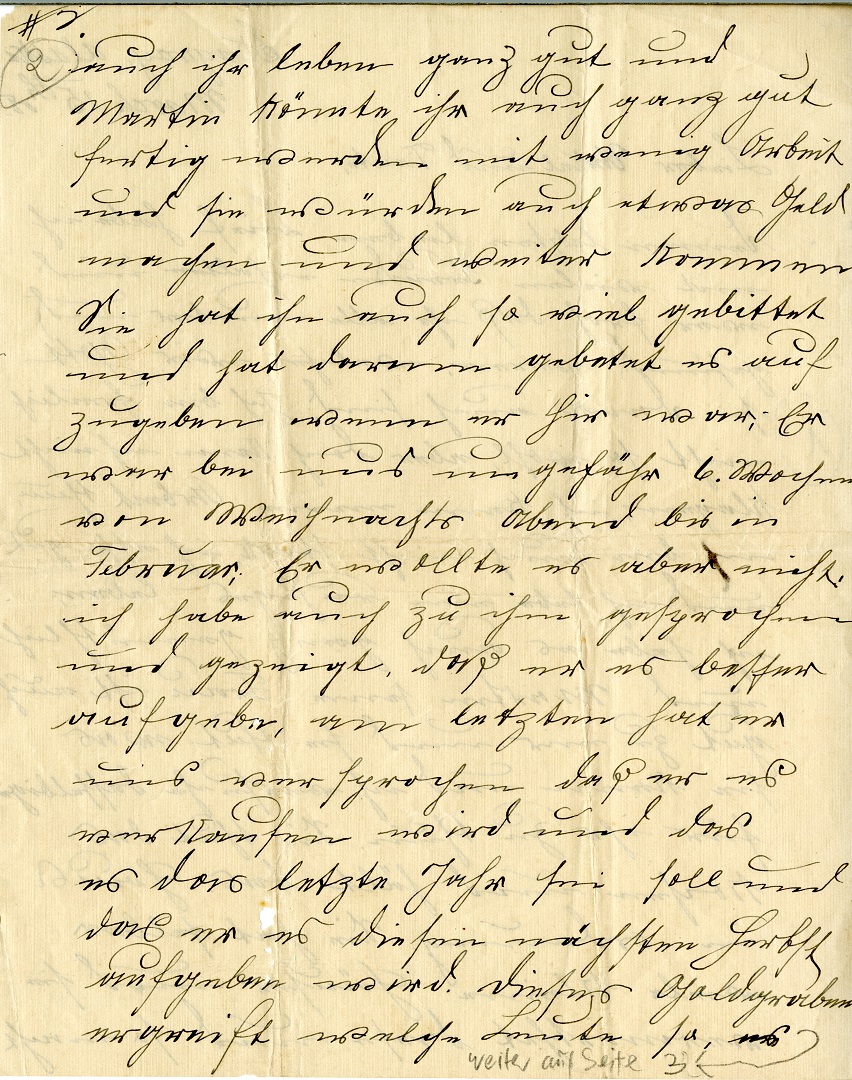 # 2.
2
auch ihr leben ganz gut und
Martin könnte ihr auch ganz gut
fertig werden mit wenig Arbeit
und sie würden auch etwas Geld
machen und weiter kommen
Sie hat ihn auch so viel gebittet
und hat darum gebetet es auf
zugeben wenn er hir war; Er
war bei uns ungefähr 6. Wochen
von Weihnachts Abend bis in
Februar; Er wollte es aber nicht.
ich habe auch zu ihm gesprochen
und gezeigt, daß er es besser
aufgebe, am letzten hat er
uns versprochen daß er es
verkaufen wird und das
es das letzte Jahr sei soll und
das er es diesen nächsten Herbst
aufgeben wird. dieses Goldgraben
ergreift welche Leute so, es
weiter auf Seite 3